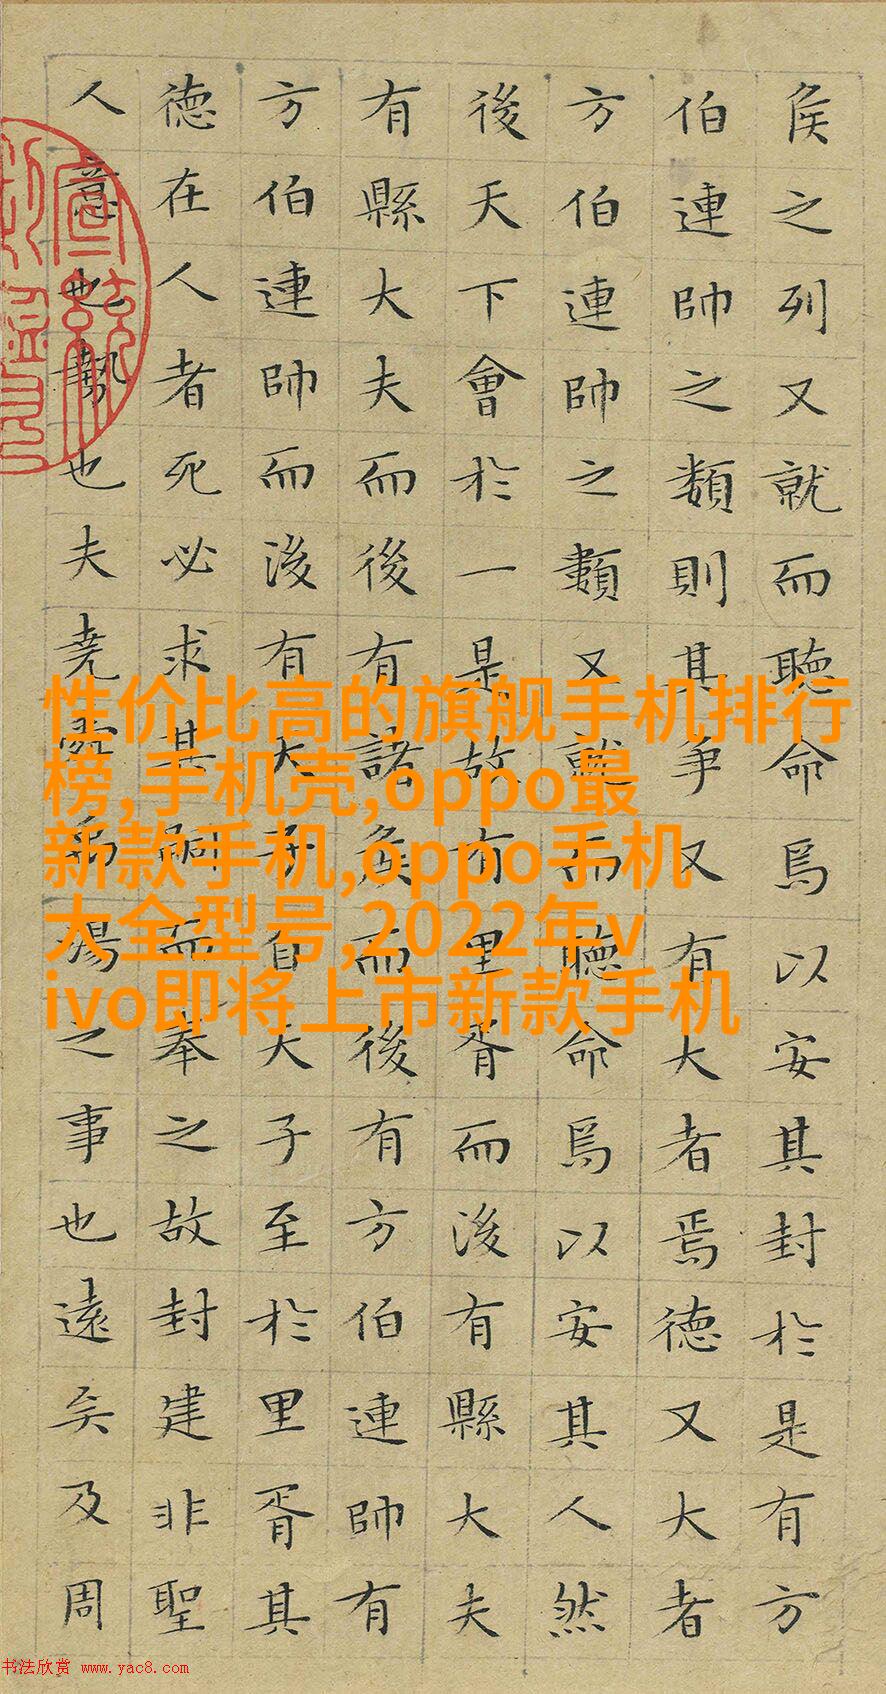 侯之列又就而聽命焉以安其封於是有方
伯連帥之類則其爭又有大者焉德又大者
方伯連帥之類又就而聽命焉以安其人然
後天下會於一是故有里胥而後有縣大夫
有縣大夫而後有諸侯而後有方伯連帥有
方伯連帥而後有天子自天子至於里胥其
德在人者死必求其嗣而奉之故封建非聖
人意也勢也夫堯舜禹湯之事也遠矣及周
性价比高的旗舰手机排行
榜,手机壳,oppo最
新款手机,oppo手机
大全型号,2022年v
ivo即将上市新款手机
书法欣赏 www.yac8.com